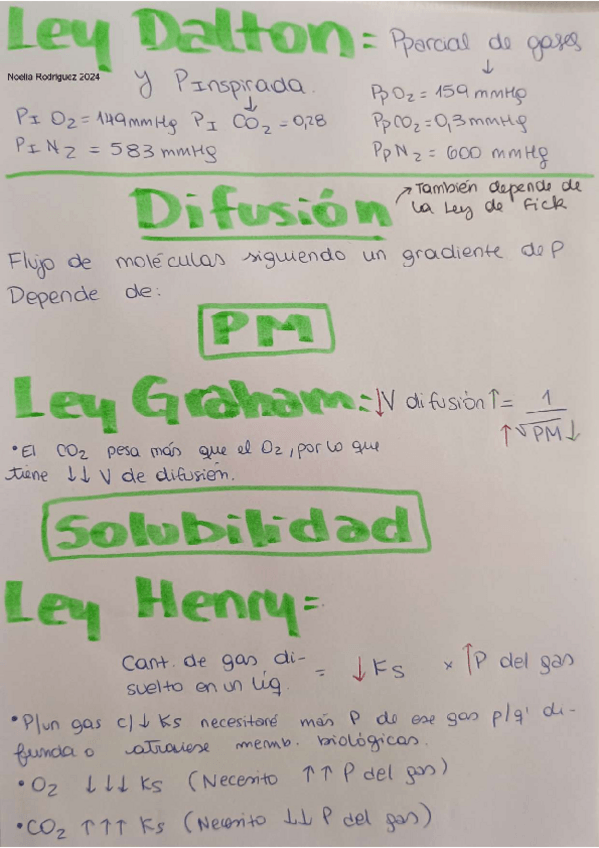 Ley Dalton = Pparcial de gases
↓
Noelia Rodriguez 2024
y PInspirada.
↓
PpO2 = 159 mmHg
PI O2 = 149 mmHg PI CO2 = 0,28
PpCO2 = 0,3 mmHg
PI N2 = 583 mmHg
PpN2 = 600 mmHg
Difusión
↗ También depende de
la Ley de Fick
Flujo de moléculas siguiendo un gradiente de P
Depende de:
PM
Ley Graham = ↓V difusión ↑ = 1
↑ √PM ↓
• El CO2 pesa más que el O2, por lo que
tiene ↓↓ V de difusión.
Solubilidad
Ley Henry =
Cant. de gas di-
suelto en un líq. = ↓ Ks × ↑ P del gas
• P/un gas c/↓ Ks necesitaré más P de ese gas p/q' di-
funda o atraviese memb. biológicas.
• O2 ↓↓↓ Ks (Necesito ↑↑ P del gas)
• CO2 ↑↑↑ Ks (Necesito ↓↓ P del gas)